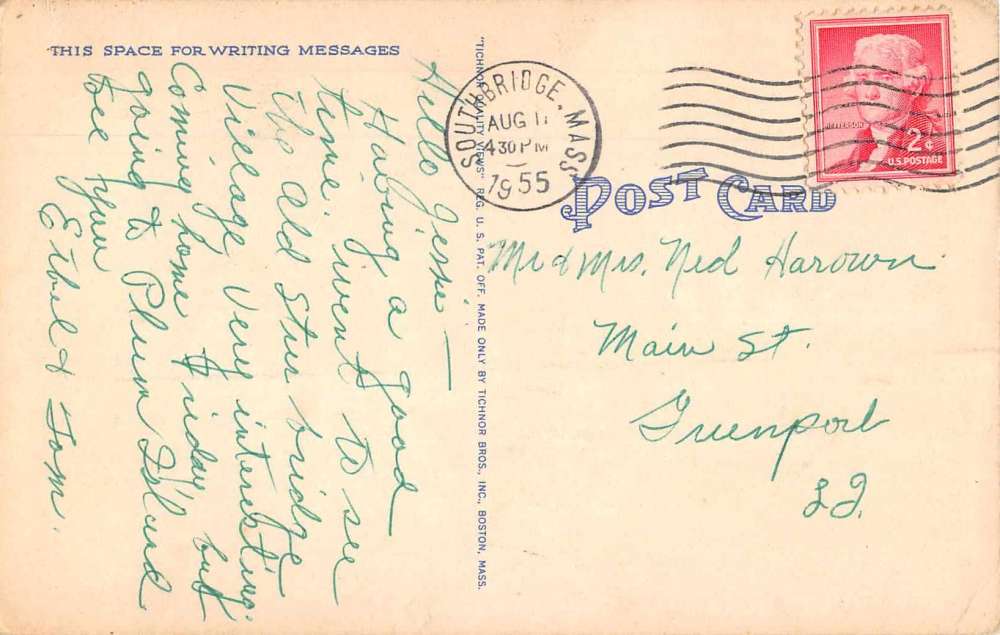 THIS SPACE FOR WRITING MESSAGES
Hello Jessie —
Having a good
time. Went to see
the Old Sturbridge
Village Very interesting.
Coming home Friday but
going to Plum Island
see you
Ethel & Tom.
"TICHNOR QUALITY VIEWS" REG. U. S. PAT. OFF. MADE ONLY BY TICHNOR BROS., INC., BOSTON, MASS.
SOUTHBRIDGE, MASS
AUG 11
4 30 PM
1955
JEFFERSON
2¢
U.S. POSTAGE
POST CARD
Mr & Mrs. Ned
Main St.
Greenport
L I.